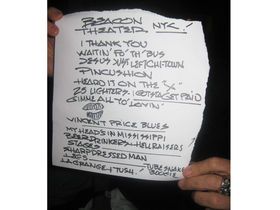 BEACON
THEATER NYC!
I THANK YOU
WAITIN' FO' TH' BUS
JESUS JUST LEFT CHI-TOWN
PINCUSHION
HEARD IT ON THE "X"
25 LIGHTERS. I GOTSTA GET PAID
GIMME ALL YO' LOVIN'
VINCENT PRICE BLUES
MY HEAD'S IN MISSISSIPPI
BEER DRINKERS + HELLRAISERS
STAGES
SHARP DRESSED MAN
LEGS
TUBE SNAKE
LA GRANGE + TUSH. BOOGIE